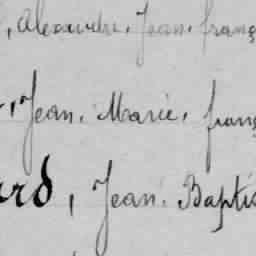 , Alexandre, Jean, franç
, Jean, Marie, franç
ard, Jean Baptis